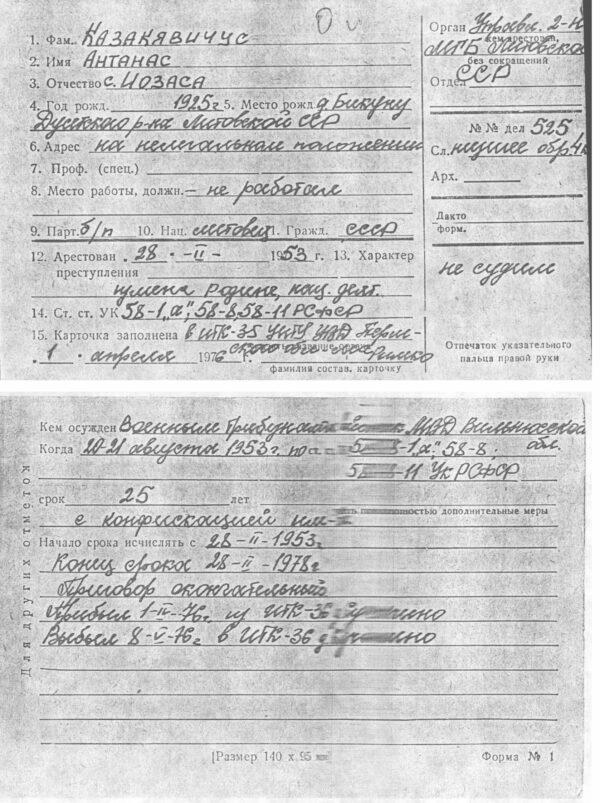 1. Фам. КАЗАКЯВИЧУС
2. Имя АНТАНАС
3. Отчество с. ИОЗАСА
4. Год рожд. 1925г 5. Место рожд. д. Бикуну
р-на Литовской ССР
6. Адрес на нелегальном положении
7. Проф. (спец.)
8. Место работы, должн. – не работал
9. Парт. б/п 10. Нац. литовец 11. Гражд. СССР
12. Арестован 28 – II – 1953 г. 13. Характер
преступления
измена родине, нац. деят.
14. Ст. ст. УК 58-1„а"; 58-8, 58-11 РСФСР
15. Карточка заполнена в ИТК-35 УИТУ УВД Перм-
1 апреля 1976 г.
фамилия состав. карточку
Орган Управл. 2-Н
кем арестован,
МГБ Литовской
без сокращений
Отдел ССР
№ № дел 525
Сл. низшее обр. 4
Арх.
Дакто
форм.
не судим
Отпечаток указательного
пальца правой руки
Кем осужден Военным Трибуналом МВД Вильнюсской
обл.
Когда 20-21 августа 1953г. по 5 -1„а", 58-8;
5 -11 УК РСФСР
срок 25 лет
полностью дополнительные меры
с конфискацией им-
Начало срока исчислять с 28-II-1953г
Конец срока 28-II-1978г
Приговор окончательный
Прибыл 1-IV-76. из ИТК-36
Выбыл 8-V-76г. в ИТК-36
Для других отметок
[Размер 140 х 95 мм
Форма № 1